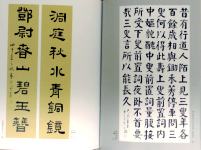 昔有行道人陌上見三叟年各
百餘歲相與鋤禾莠停車問三
叟何以得此壽上叟前置詞室
中嫗貌醜中叟前置詞量腹節
所受下叟前置詞夜臥不覆首要
哉三叟言所以能長久
洞庭秋水青銅鏡
鄧尉春山碧玉簪